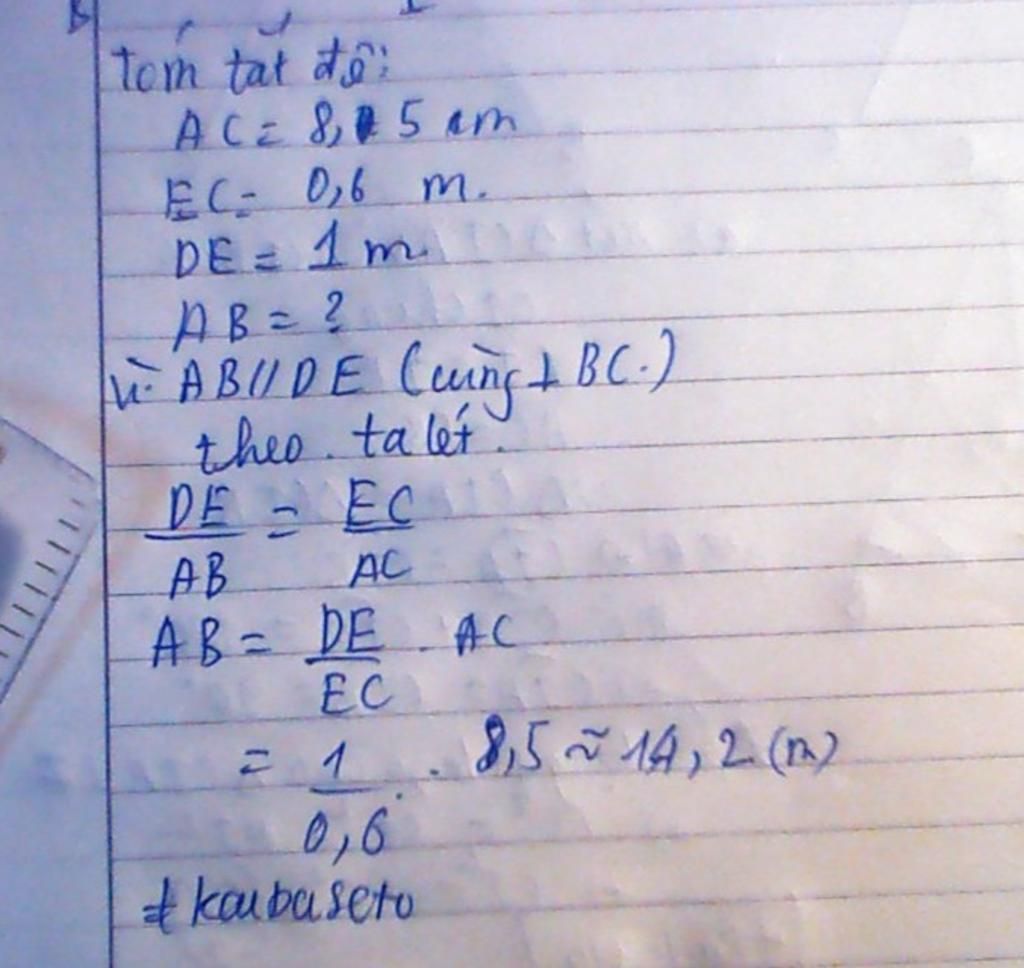 tóm tắt đề:
AC = 8,5 cm
EC = 0,6 m.
DE = 1 m
AB = ?
vì AB // DE (cùng ⊥ BC.)
theo ta lét.
DE/AB = EC/AC
AB = DE/EC . AC
= 1/0,6 . 8,5 ≈ 14,2 (m)
# kaubaseto